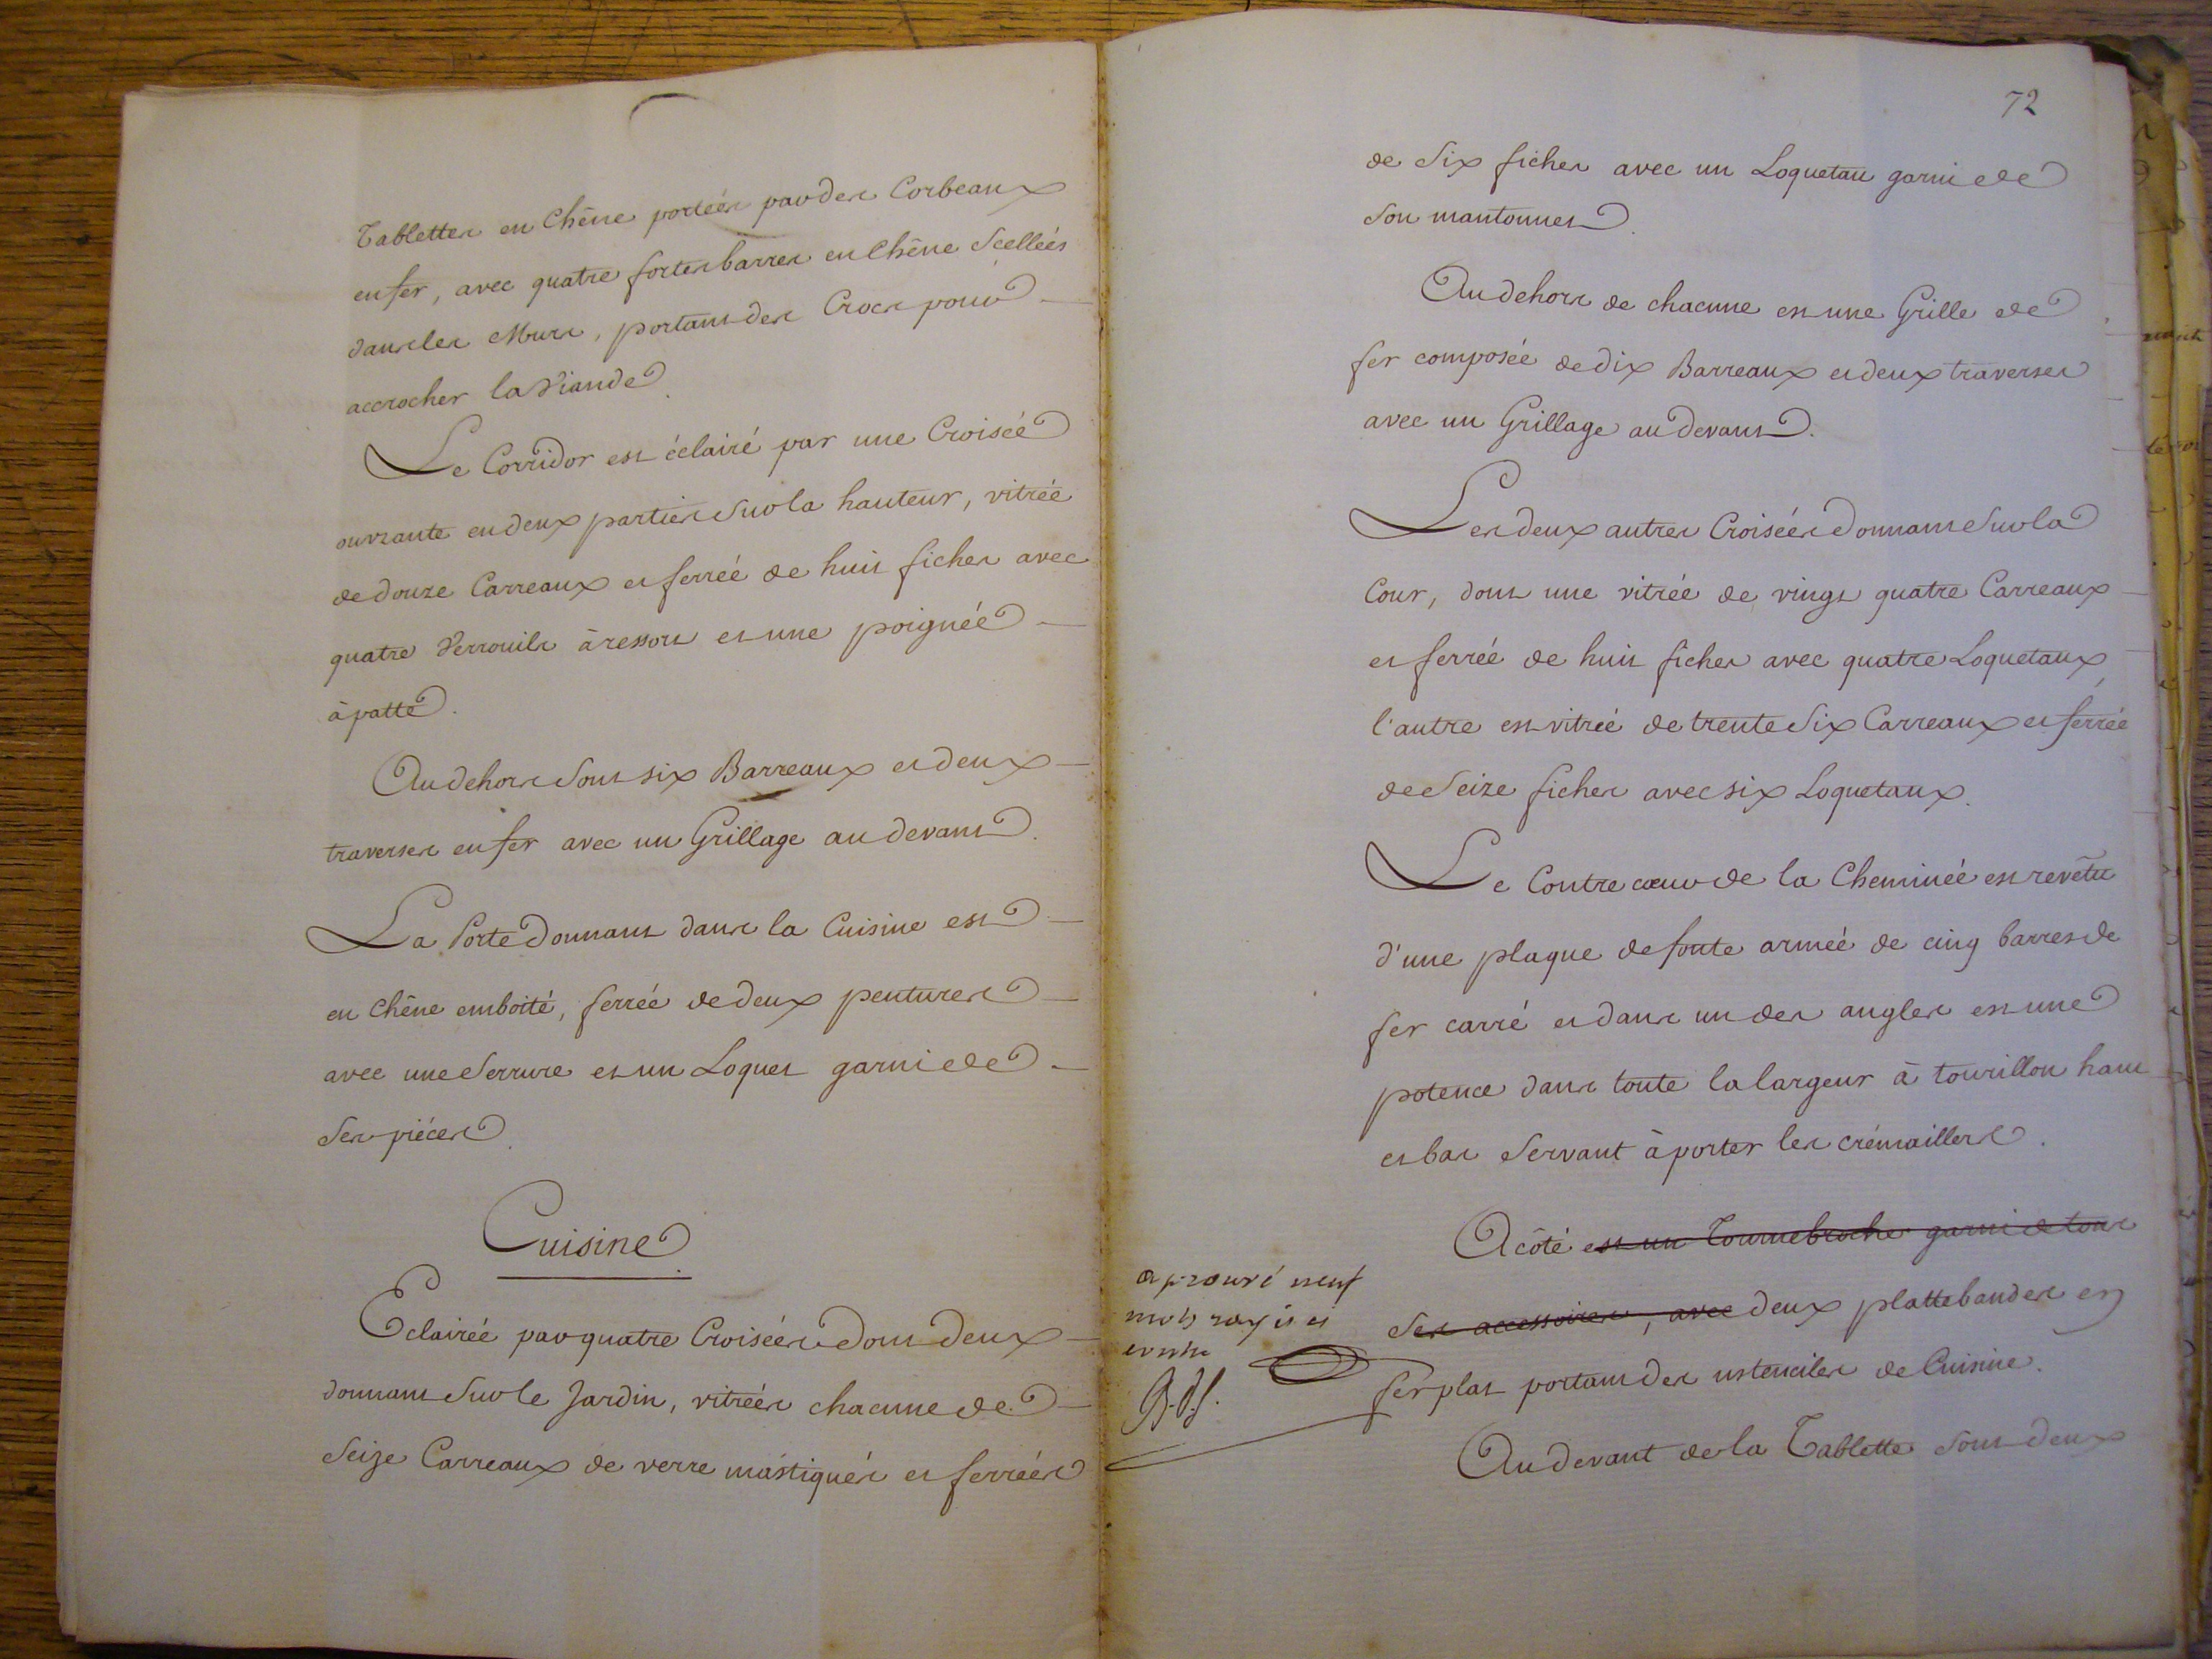 Tablettes en Chêne portées par des Corbeaux
en fer, avec quatre fortes barres en Chêne Scellées
dans les Murs, portant des Crocs pour
accrocher la Viande.
Le Corridor est éclairé par une Croisée
ouvrante en deux parties Sur la hauteur, vitrée
de douze Carreaux et ferrée de huit fiches avec
quatre Verrouils à ressort et une poignée
à patte.
Au dehors Sont six Barreaux et deux
traverses en fer avec un Grillage au devant.
La Porte Donnant dans la Cuisine est
en Chêne emboité, ferrée de deux pentures
avec une Serrure et un Loquet garni de
Ses piéces.
Cuisine.
Eclairée par quatre Croisées dont deux
donnant Sur le Jardin, vitrées chacune de
Seize Carreaux de verre mastiqués et ferrées
72
de Six fiches avec un Loquetau garni de
Son mantonnet.
Au dehors de chacune est une Grille de
fer composée de dix Barreaux et deux traverses
avec un Grillage au devant.
Les deux autres Croisées donnant Sur la
Cour, dont une vitrée de vingt quatre Carreaux
et ferrée de huit fiches avec quatre Loquetaux,
l'autre est vitrée de trente Six Carreaux et ferrée
de Seize fiches avec six Loquetaux.
Le Contre cœur de la Cheminée est revêtu
d'une plaque de fonte armée de cinq barres de
fer carré et dans un des angles est une
potence dans toute la largeur à tourillon haut
et bas Servant à porter les crémaillers.
A côté est un Tournebroche garni de tous
Ses accessoires, avec deux plattebandes en
fer plat portant des ustenciles de Cuisine.
Au devant de la Tablette Sont deux
aprouvé neuf
mots rayés et